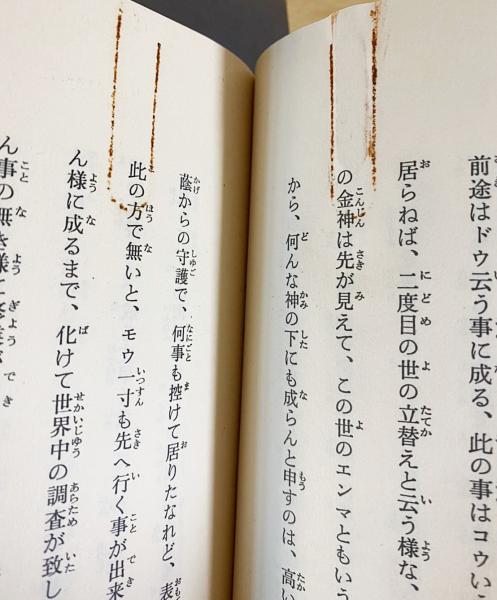 前途はドウ云う事に成る、此の事はコウい
居らねば、二度目の世の立替えと云う様な、
の金神は先が見えて、この世のエンマともいう
から、何んな神の下にも成らんと申すのは、高い
蔭からの守護で、何事も控けて居りたなれど、表
此の方で無いと、モウ一寸も先へ行く事が出来
ん様に成るまで、化けて世界中の調査が致し
ん事の無き様に